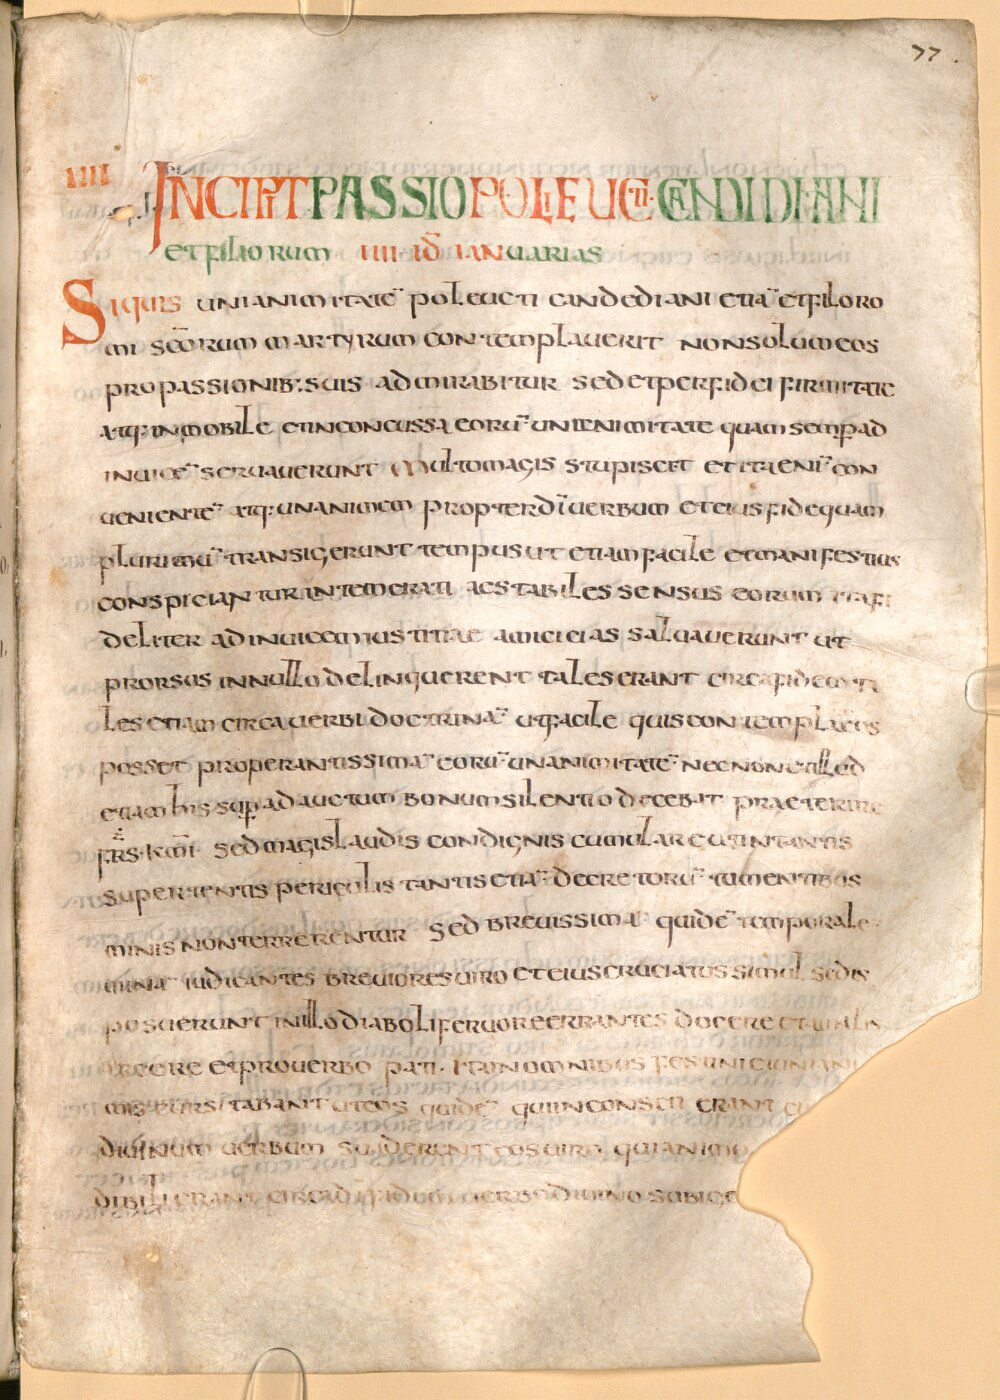 77.
IIII INCIPIT PASSIO POLIEUCTI CANDIDIANI
et filiorum IIII id ianuarias
Si quis unianimitatē poleucti candediani etiā et filoro
mi scōrum martyrum contemplauerit non solum eos
pro passionib: suis admirabitur sed et per fidei firmitate
atq: inmobile et inconcussa eorū unienimitate quam semp ad
inuicē seruauerunt multo magis stupiscet et ita enī con
uenientē atq: unanimem propter dī uerbum et eius fide quam
plurimū transigerunt tempus ut etiam facile et manifestius
conspiciantur intemerati ac stabiles sensus eorum
deliter ad inuicem iustitiae amicicias saluauerunt ut
prorsus in nullo delinquerent tales erant circa fidem ta
les etiam circa uerbi doctrinā ut facile quis contemplare eos
posset properantissimā eorū unanimitatē necnon et illed
etiam his sup adauctum bonum silentio decebat praeterire
frs kmi sed magis laudis condignis cumulare ut in tantis
superuentis periculis tantis etiā decretorū tumentibus
minis non terrerentur sed breuissimā quidē temporale
minā iudicantes breuiores uiro et eius cruciatus simul sedis
posuerunt in illo diaboli feruore errantes docere et
et prouerbo pati. omnibus
ut eos quidē qui inconsti erant
diuinum uerbum suaderent eos uiro quia nimo
dibili erant circa dī fidem uerbo diuino subice